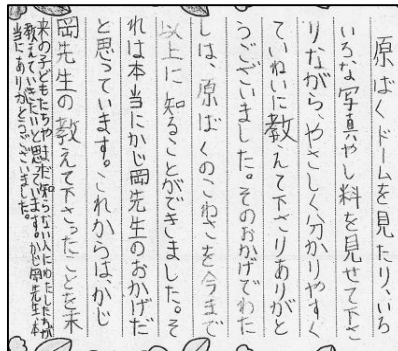 原ばくドームを見たり、いろ
いろな写真やし料を見せて下さ
りながら、やさしく分かりやすく
ていねいに教えて下さりありがと
うございました。そのおかげでわた
しは、原ばくのこわさを今まで
以上に知ることができました。そ
れは本当にかじ岡先生のおかげだ
と思っています。これからは、かじ
岡先生の教えて下さったことを未
来の子どもたちやまだ知らない人にわたしたちが
教えていきたいと思っています。かじ岡先生、本
当にありがとうございました。